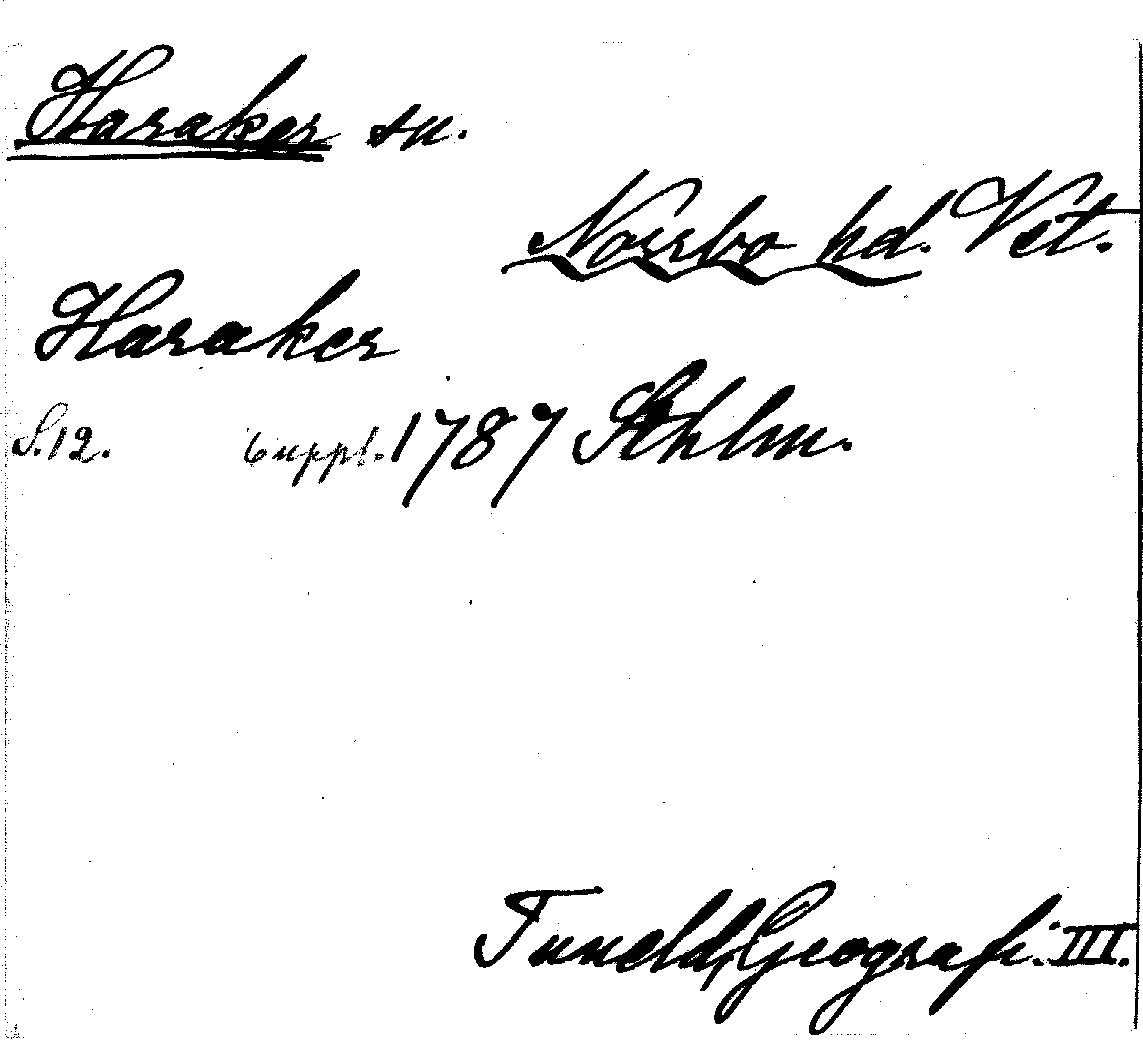 Haraker sn.
Norrbo hd. Vst.
Haraker
S. 12. suppl. 1787 Sthlm.
Tuneld, Geografi. III.